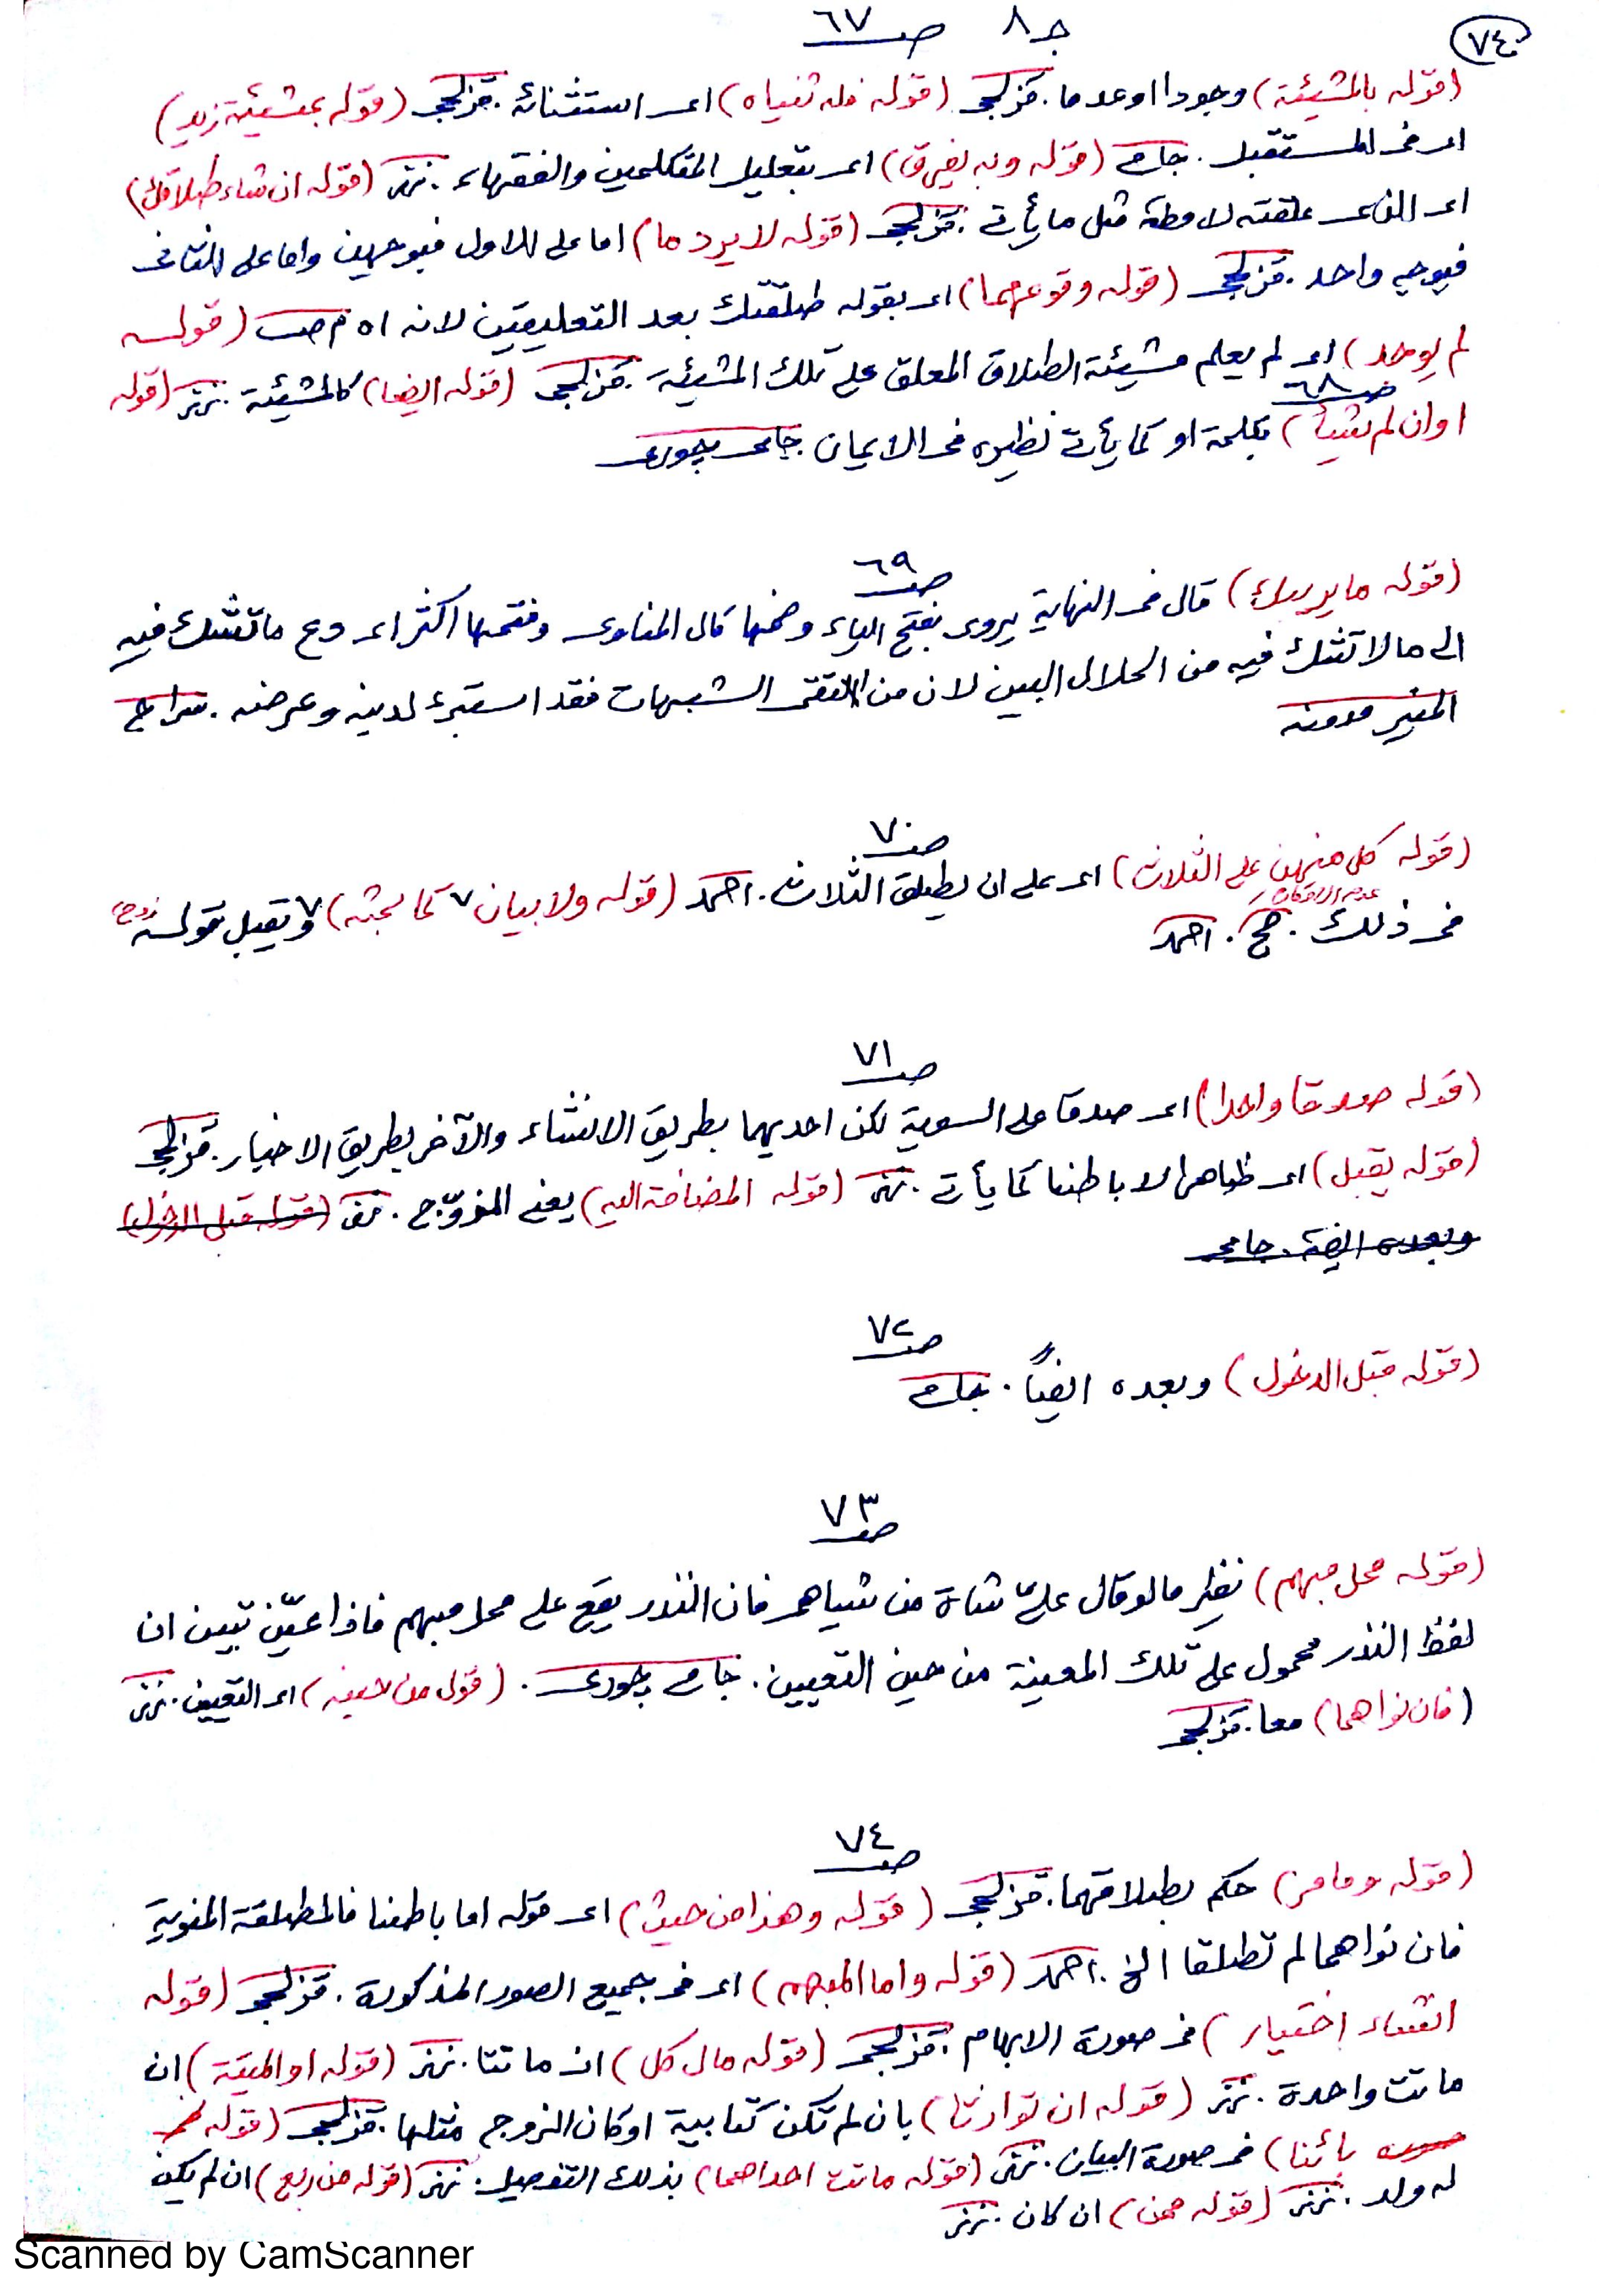 ٧٤
جـ ٨ صـ ٦٧
(قوله بالمشيئة) وجودا اوعدما . قزلجى (قوله فله ثنياه) اى استثنائه . قزلجى (قوله بمشيئة زيد)
اى فى المستقبل . جامى (قوله وبه يفرق) اى بتعليل المتكلمين والفقهاء . نزنز (قوله ان شاء طلاقك)
اى الذى علقته لا مطلقا مثل ما يأتى . قزلجى (قوله لا يرد ما) اما على الاول فبوجهين واما على الثانى
فبوجه واحد . قزلجى (قوله وقوعهما) اى بقوله طلقتك بعد التعليقين لانه اه م ص (قوله
لم يوجد) اى لم يعلم مشيئة الطلاق المعلق على تلك المشيئة . قزلجى (قوله ايضا) كالمشيئة . نزنز (قوله
صـ ٦٨
اوان لم يشأ) بكلمة او كما يأتى نظيره فى الايمان جامى بجورى
صـ ٦٩
(قوله ما يريبك) قال فى النهاية يروى بفتح الياء وضمها قال المناوى وفتحها اكثر اى دع ما تشك فيه
الى ما لا تشك فيه من الحلال البين لان من اتقى الشبهات فقد استبرء لدينه وعرضه . سراج
المنير
صـ ٧٠
(قوله كل منهن على الثلاث) اى على ان يطلق الثلاث . احمد (قوله ولا بيان ٧ كما بحثه) ٧ ويقبل قوله
عدم الامكان
فى ذلك . حج . احمد
صـ ٧١
(قوله صدقا واحدا) اى صدقا على السوية لكن احديهما بطريق الانشاء والآخر بطريق الاخبار . قزلجى
(قوله يقبل) اى ظاهرا لا باطنا كما يأتى . نزنز (قوله المضافة اليه) يعنى المزوّج . (قوله قبل الدخول)
وبعده ايضا . جامى
صـ ٧٢
(قوله قبل الدخول) وبعده ايضاً . جامى
صـ ٧٣
(قوله محل مبهم) نظير ما لو قال علىّ شاة من شياهى فان النذر يقع على محل مبهم فاذا عيّن تبين ان
لفظ النذر محمول على تلك المعينة من حين التعيين . جامى بجورى . (قوله من حينه) اى التعيين . نزنز
(فان نواهما) معا . قزلجى
صـ ٧٤
(قوله ومامر) حكم بطلاقهما . قزلجى (قوله وهذا من حيث) اى قوله اما باطنا فالمطلقة المنوية
فان نواهما لم تطلقا الخ . احمد (قوله واما المبهم) اى فى جميع الصور المذكورة . قزلجى (قوله
انشاء اختيار) فى صورة الابهام . قزلجى (قوله مال كل) ان ماتتا . نزنز (قوله او الميتة) ان
ماتت واحدة . نزنز (قوله ان توارثا) بان لم تكن كتابية او كان الزوج مثلها . قزلجى (قوله
بائنا) فى صورة البيان . نزنز (قوله ماتت احداهما) بذلك التفصيل . نزنز (قوله من ربع) ان لم يكن
له ولد . نزنز (قوله ثمن) ان كان . نزنز
Scanned by CamScanner